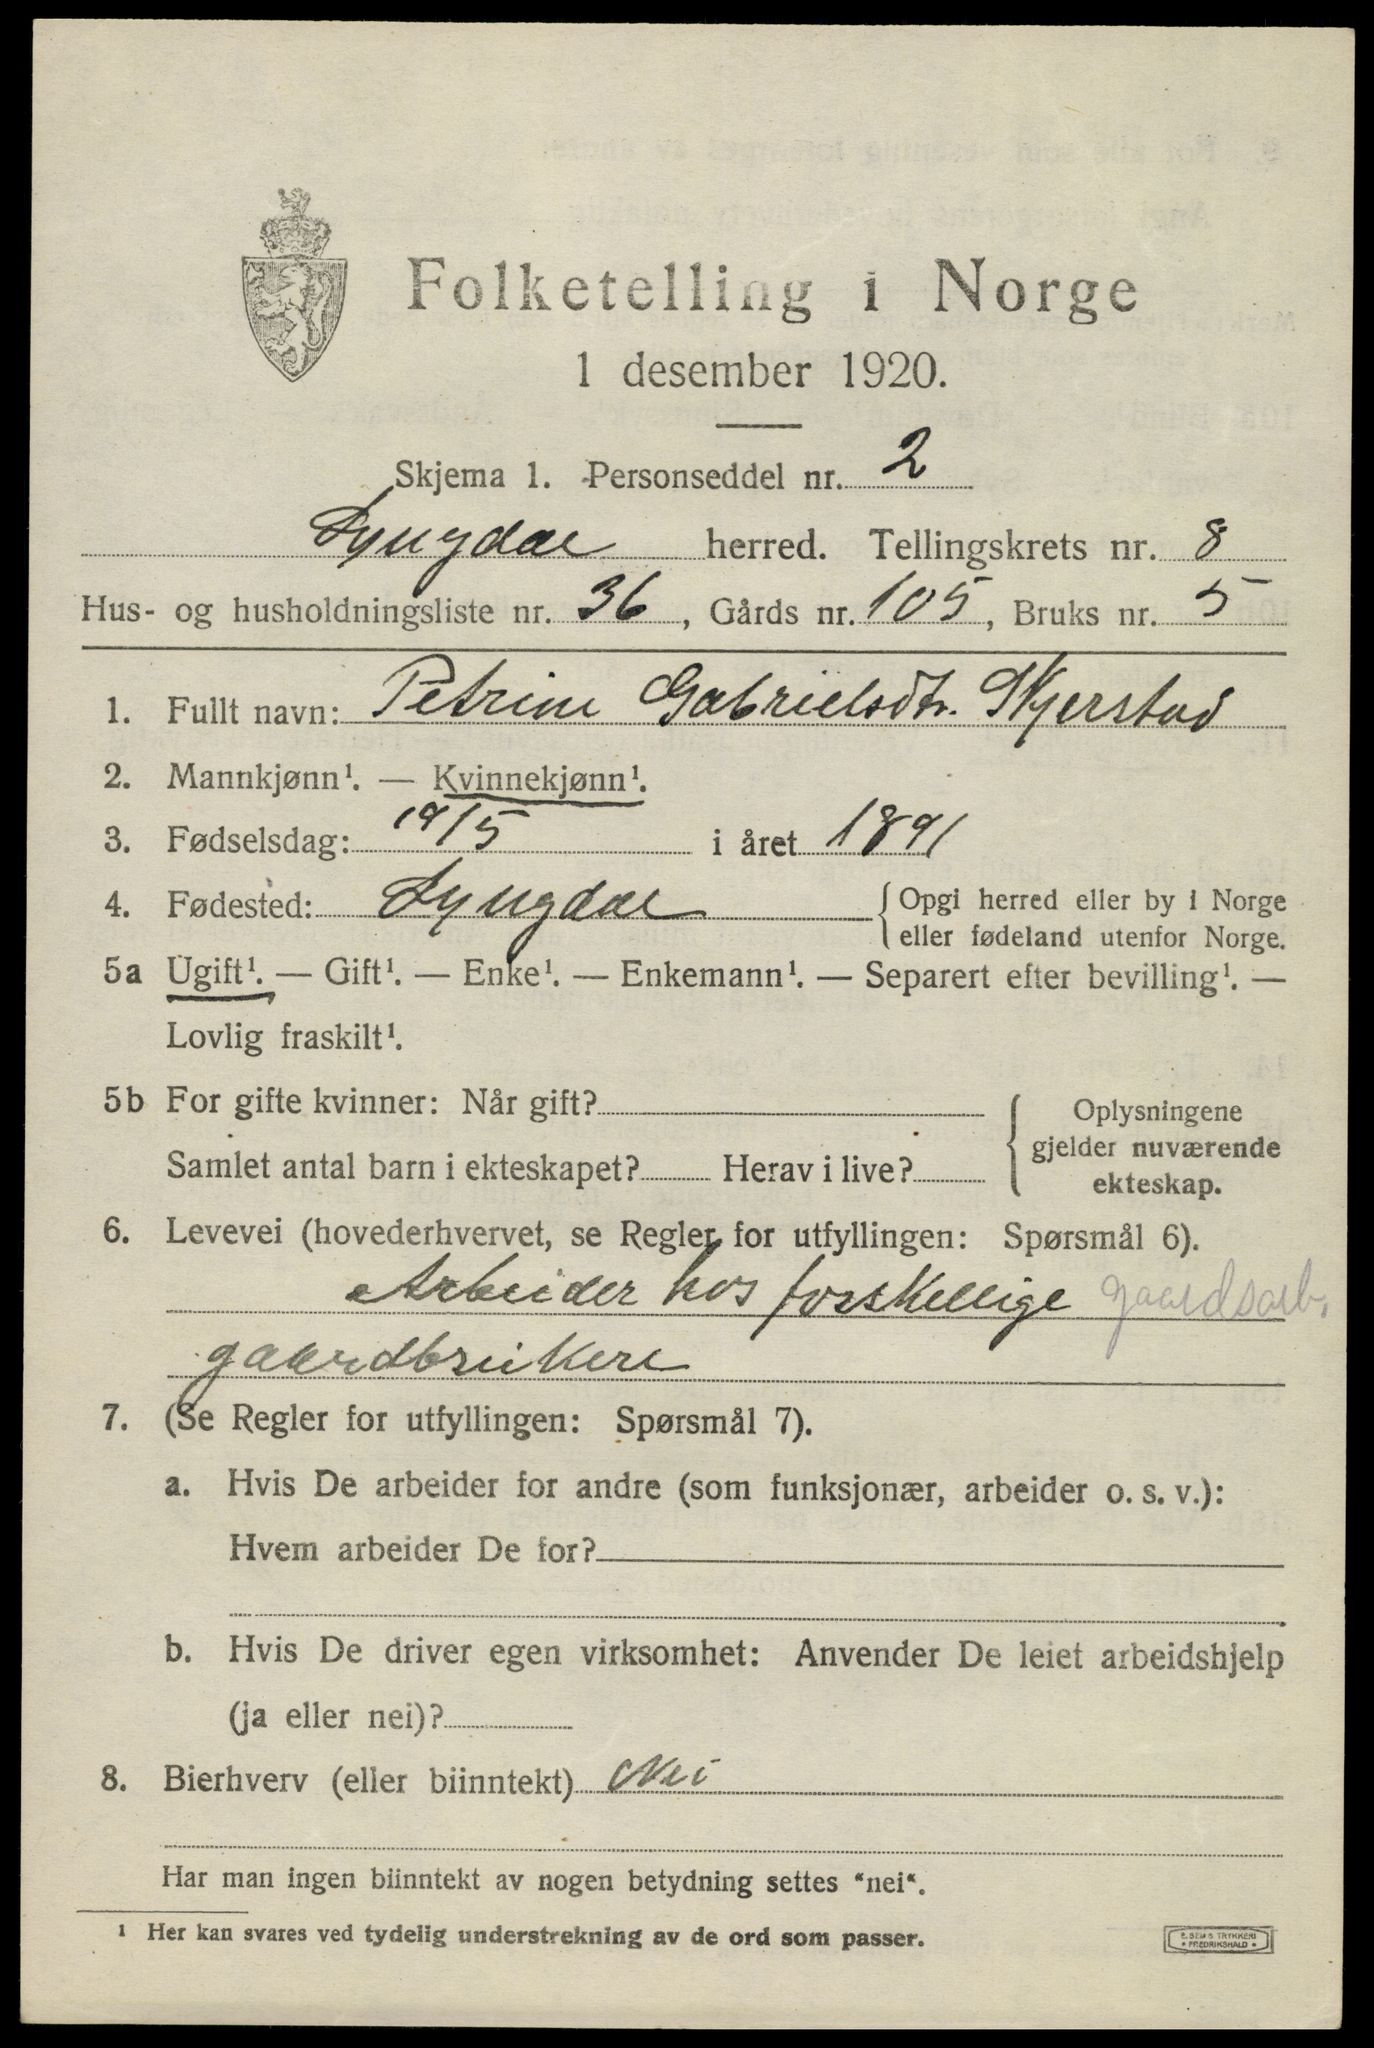 Folketelling i Norge
1 desember 1920.
Skjema 1. Personseddel nr. 2
Lyngdal herred. Tellingskrets nr. 8
Hus- og husholdningsliste nr. 36, Gårds nr. 105, Bruks nr. 5
1. Fullt navn: Petrine Gabrielsdtr. Skjerstad
2. Mannkjønn¹. — Kvinnekjønn¹.
3. Fødselsdag: 19/5 i året 1891
4. Fødested: Lyngdal {Opgi herred eller by i Norge
eller fødeland utenfor Norge.
5a Ugift¹. — Gift¹. — Enke¹. — Enkemann¹. — Separert efter bevilling¹. —
Lovlig fraskilt¹.
5b For gifte kvinner: Når gift?
Samlet antal barn i ekteskapet? Herav i live?
Oplysningene
gjelder nuværende
ekteskap.
6. Levevei (hovederhvervet, se Regler for utfyllingen: Spørsmål 6).
Arbeider hos forskellige gaardsarb.
gaardbrukere
7. (Se Regler for utfyllingen: Spørsmål 7).
a. Hvis De arbeider for andre (som funksjonær, arbeider o. s. v.):
Hvem arbeider De for?
b. Hvis De driver egen virksomhet: Anvender De leiet arbeidshjelp
(ja eller nei)?
8. Bierhverv (eller biinntekt) Nei
Har man ingen biinntekt av nogen betydning settes "nei".
¹ Her kan svares ved tydelig understrekning av de ord som passer.
E. SEMS TRYKKERI
• FREDRIKSHALD •